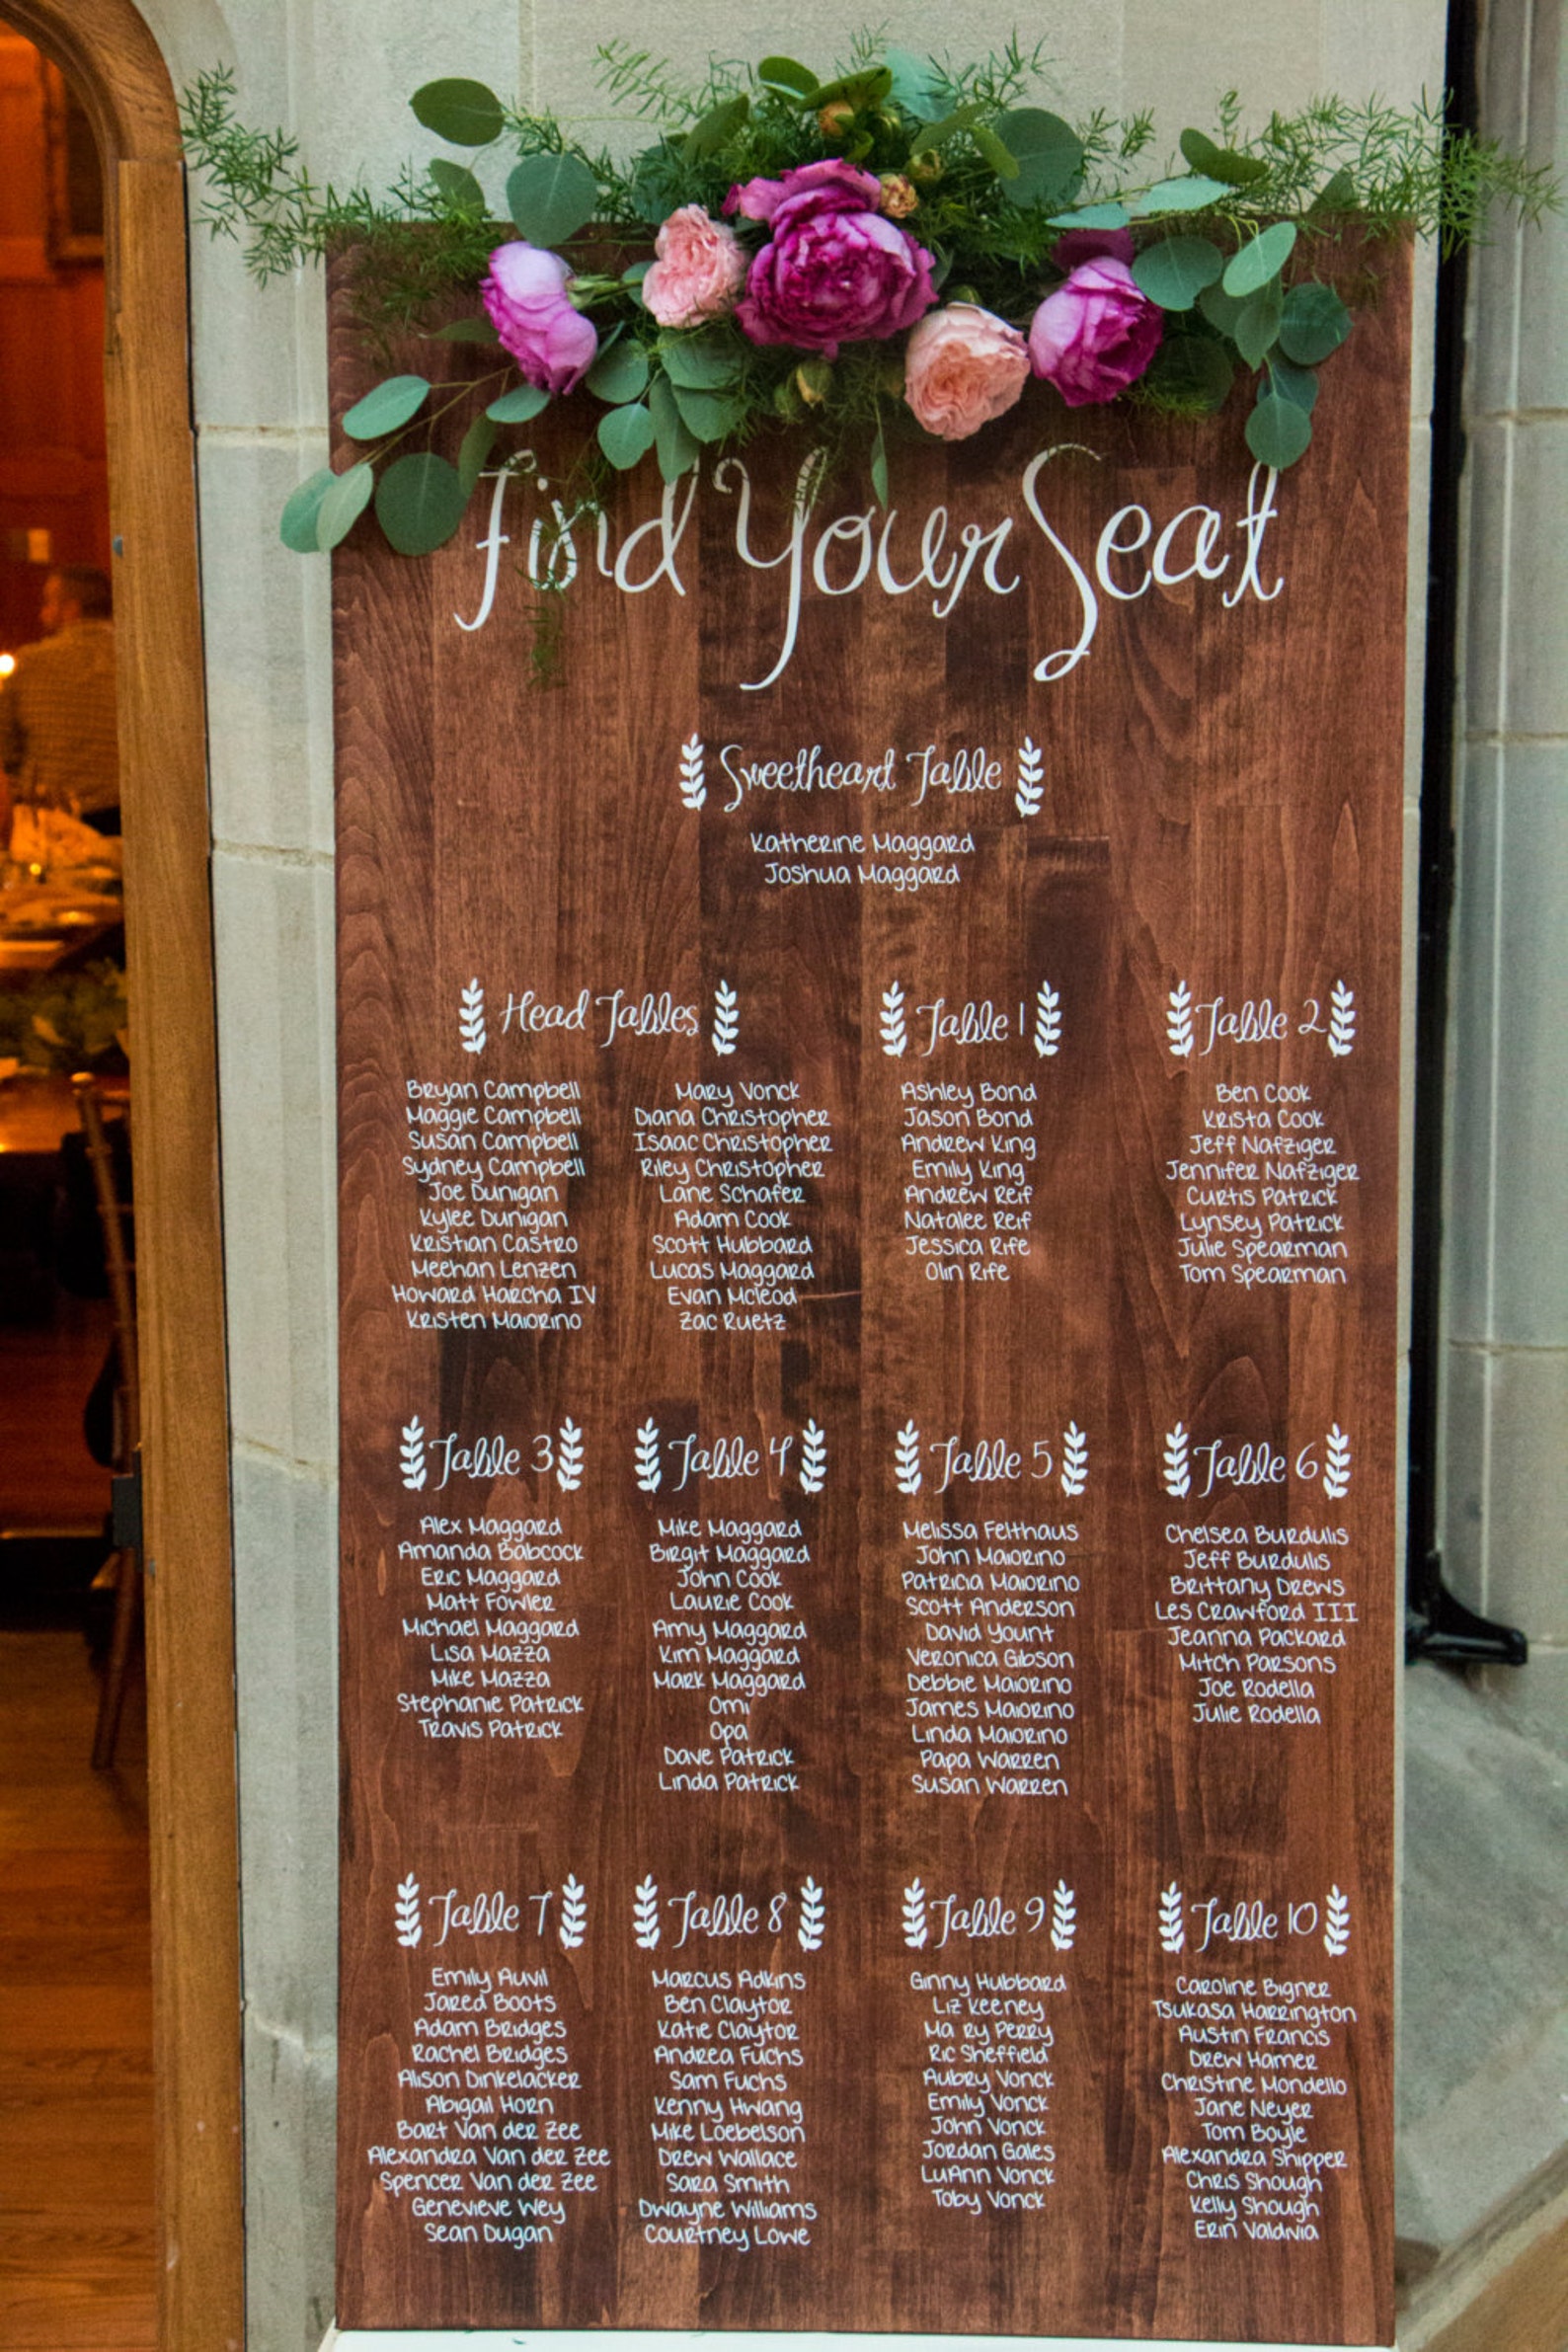 Find Your Seat
Sweetheart Table
Katherine Maggard
Joshua Maggard
Head Tables
Bryan Campbell
Maggie Campbell
Susan Campbell
Sydney Campbell
Joe Dunigan
Kylee Dunigan
Kristian Castro
Meehan Lenzen
Howard Harcha IV
Kristen Maiorino
Mary Vonck
Diana Christopher
Isaac Christopher
Riley Christopher
Lane Schafer
Adam Cook
Scott Hubbard
Lucas Maggard
Evan Mcleod
Zac Ruetz
Table 1
Ashley Bond
Jason Bond
Andrew King
Emily King
Andrew Reif
Natalee Reif
Jessica Rife
Olin Rife
Table 2
Ben Cook
Krista Cook
Jeff Nafziger
Jennifer Nafziger
Curtis Patrick
Lynsey Patrick
Julie Spearman
Tom Spearman
Table 3
Alex Maggard
Amanda Babcock
Eric Maggard
Matt Fowler
Michael Maggard
Lisa Mazza
Mike Mazza
Stephanie Patrick
Travis Patrick
Table 4
Mike Maggard
Birgit Maggard
John Cook
Laurie Cook
Amy Maggard
Kim Maggard
Mark Maggard
Omi
Opa
Dave Patrick
Linda Patrick
Table 5
Melissa Felthaus
John Maiorino
Patricia Maiorino
Scott Anderson
David Yount
Veronica Gibson
Debbie Maiorino
James Maiorino
Linda Maiorino
Papa Warren
Susan Warren
Table 6
Chelsea Burdulis
Jeff Burdulis
Brittany Drews
Les Crawford III
Jeanna Packard
Mitch Parsons
Joe Rodella
Julie Rodella
Table 7
Emily Auvil
Jared Boots
Adam Bridges
Rachel Bridges
Alison Dinkelacker
Abigail Horn
Bart Van der Zee
Alexandra Van der Zee
Spencer Van der Zee
Genevieve Wey
Sean Dugan
Table 8
Marcus Adkins
Ben Claytor
Katie Claytor
Andrea Fuchs
Sam Fuchs
Kenny Hwang
Mike Loebelson
Drew Wallace
Sara Smith
Dwayne Williams
Courtney Lowe
Table 9
Ginny Hubbard
Liz Keeney
Ma ry Perry
Ric Sheffield
Aubry Vonck
Emily Vonck
John Vonck
Jordan Gales
LuAnn Vonck
Toby Vonck
Table 10
Caroline Bigner
Tsukasa Harrington
Austin Francis
Drew Hamer
Christine Mondello
Jane Neyer
Tom Boyle
Alexandra Shipper
Chris Shough
Kelly Shough
Erin Valdivia